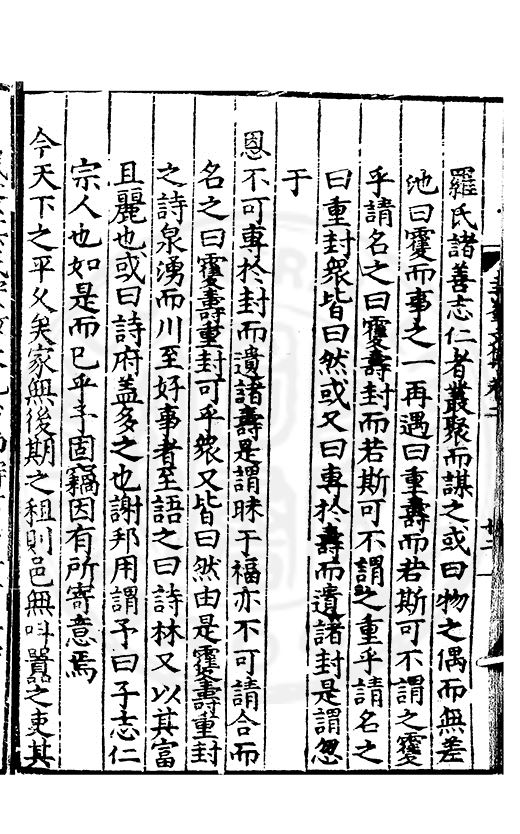 羅氏諸善志仁者叢聚而謀之或曰物之偶而無差
池曰䨥而事之一再遇曰重壽而若斯可不謂之䨥
乎請名之曰䨥壽封而若斯可不謂之重乎請名之
曰重封衆皆曰然或又曰專於壽而遺諸封是謂忽
于
恩不可專於封而遺諸壽是謂昧于福亦不可請合而
名之曰䨥壽重封可乎衆又皆曰然由是䨥壽重封
之詩泉湧而川至好事者至語之曰詩林又以其富
且麗也或曰詩府盖多之也謝邦用謂予曰子志仁
宗人也如是而已乎予固竊因有所寄意焉
今天下之平乆矣家無後期之租則邑無呌囂之吏其